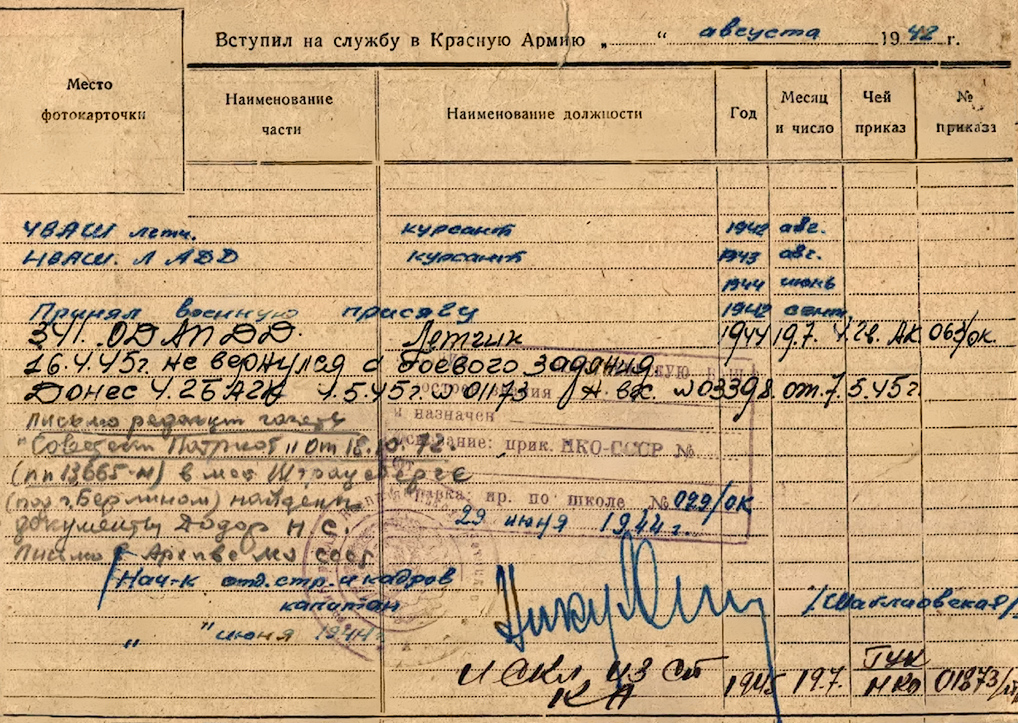 Вступил на службу в Красную Армию „ “ августа 1942 г.
Место фотокарточки
Наименование части
Наименование должности
Год
Месяц и число
Чей приказ
№ приказа
ЧВАШ летч. курсант 1942 авг.
НВАШ. Л АДД курсант 1943 авг.
1944 июнь
Принял военную присягу 1942 сент.
341. ОДАПДД. Летчик 1944 19.7. 4.гв. АК 063/ок.
16.4.45г. не вернулся с боевого задания.
Донес 4.гБАгк 4.5.45г. № 01173 вх. № 03398. от. 7.5.45г
и назначен
прик. НКО-СССР №
Письмо редакции газеты
"Советский Патриот" от 18.10.72.
(пп 13665-н) в мест Штраусберге
(под г. Берлином) найдены
документы Додор Н.С.
Письмо в Архиве МО СССР
пр. по школе № 029/ОК
29 июня 1944 г.
Нач-к отд. стр. и кадров
капитан /Шаблаовская/
„ “ июня 1944г.
Искл из сп КА 1945 19.7. ГУК НКО 01873/